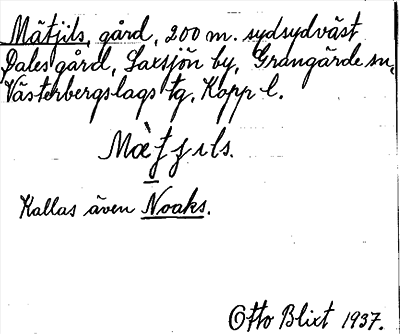 Mätjils, gård, 200 m. sydsydväst
Dales gård, Laxsjön by, Grangärde sn,
Västerbergslags tg, Kopp l.
Mæ̀tjils.
Kallas även Noaks.
Otto Blixt 1937.